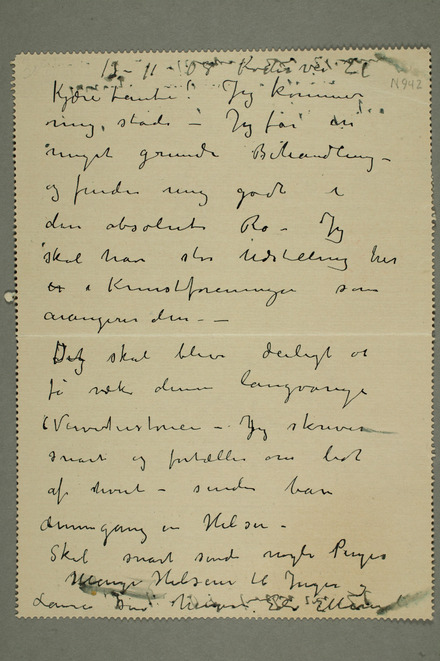 13-11-08
N942
Kjære Tante! Jeg kommer
ing. steds – Jeg får en
meget grundig Behandling –
og finder mig godt i
den absolute Ro – Jeg
skal have stor Udstilling her
i Kunstforeningen som
arangerer den –
Det skal blive deiligt at
få væk denne langvarige
Nervøsitet – Jeg skriver
snart og fortæller om lidt
af hvert – sender bare
denne gang en Hilsen –
Skal snart sende nogle Penge
Mange Hilsener til Inger og
Laura Din